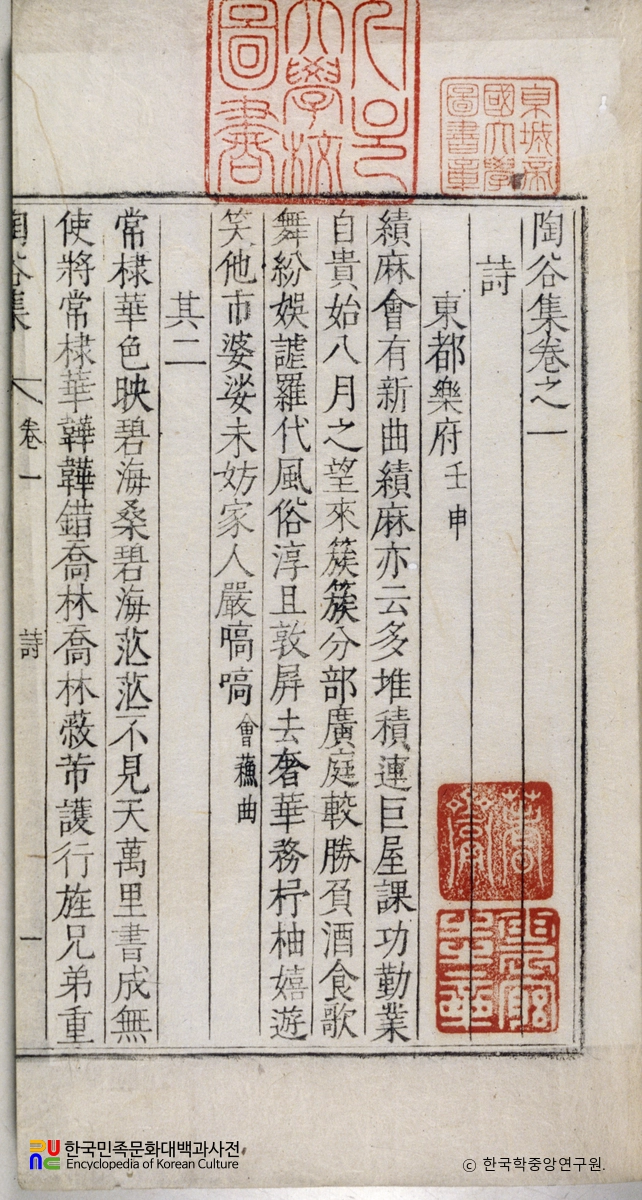 陶谷集卷之一
詩
東都樂府 壬申
績麻會有新曲績麻亦云多堆積連巨屋課功勤業
自貴始八月之望來簇簇分部廣庭較勝負酒食歌
舞紛娛謔羅代風俗淳且敦屛去奢華務杼柚嬉遊
笑他市婆娑未妨家人嚴嗃嗃 會蘓曲
其二
常棣華色映碧海桑碧海茫茫不見天萬里書成無
使將常棣華韡韡錯喬林喬林蔽芾護行旌兄弟重
陶谷集 卷一 詩 一
東城帝國大學圖書章
大學校圖書
한국민족문화대백과사전
Encyclopedia of Korean Culture
© 한국학중앙연구원.